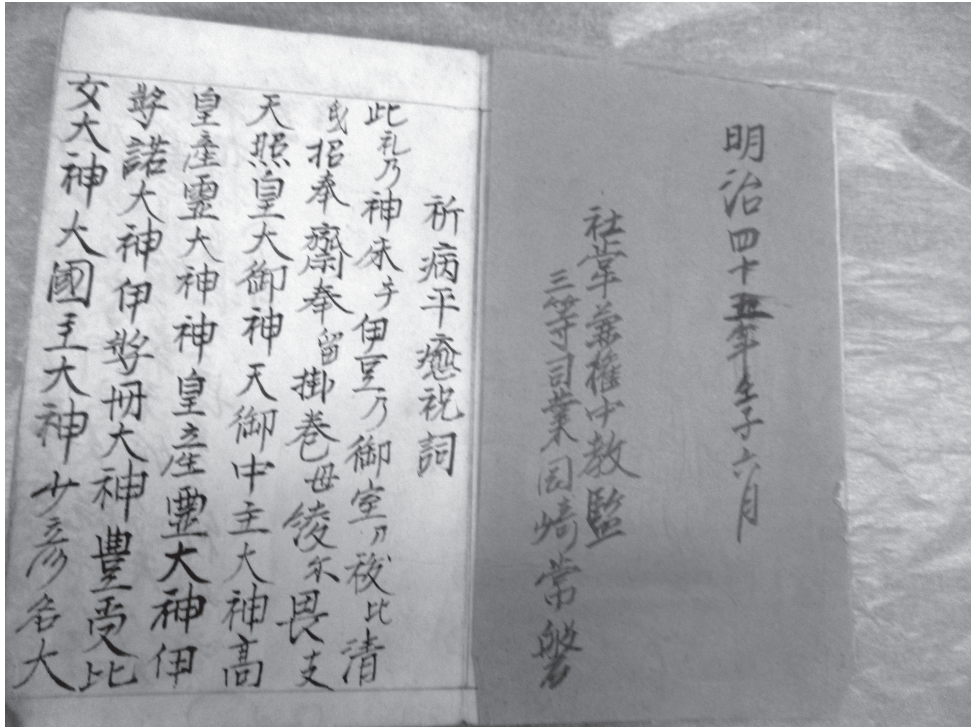 明治四十五年壬子六月
社掌兼権中教監
三等司業岡崎常磐
祈病平癒祝詞
此礼乃神床乎伊豆乃御室刀祓比清
氐招奉齋奉留掛巻毋綾尓畏支
天照皇大御神天御中主大神高
皇産霊大神神皇産霊大神伊
弉諾大神伊弉冊大神豊受比
女大神大國主大神少彦名大